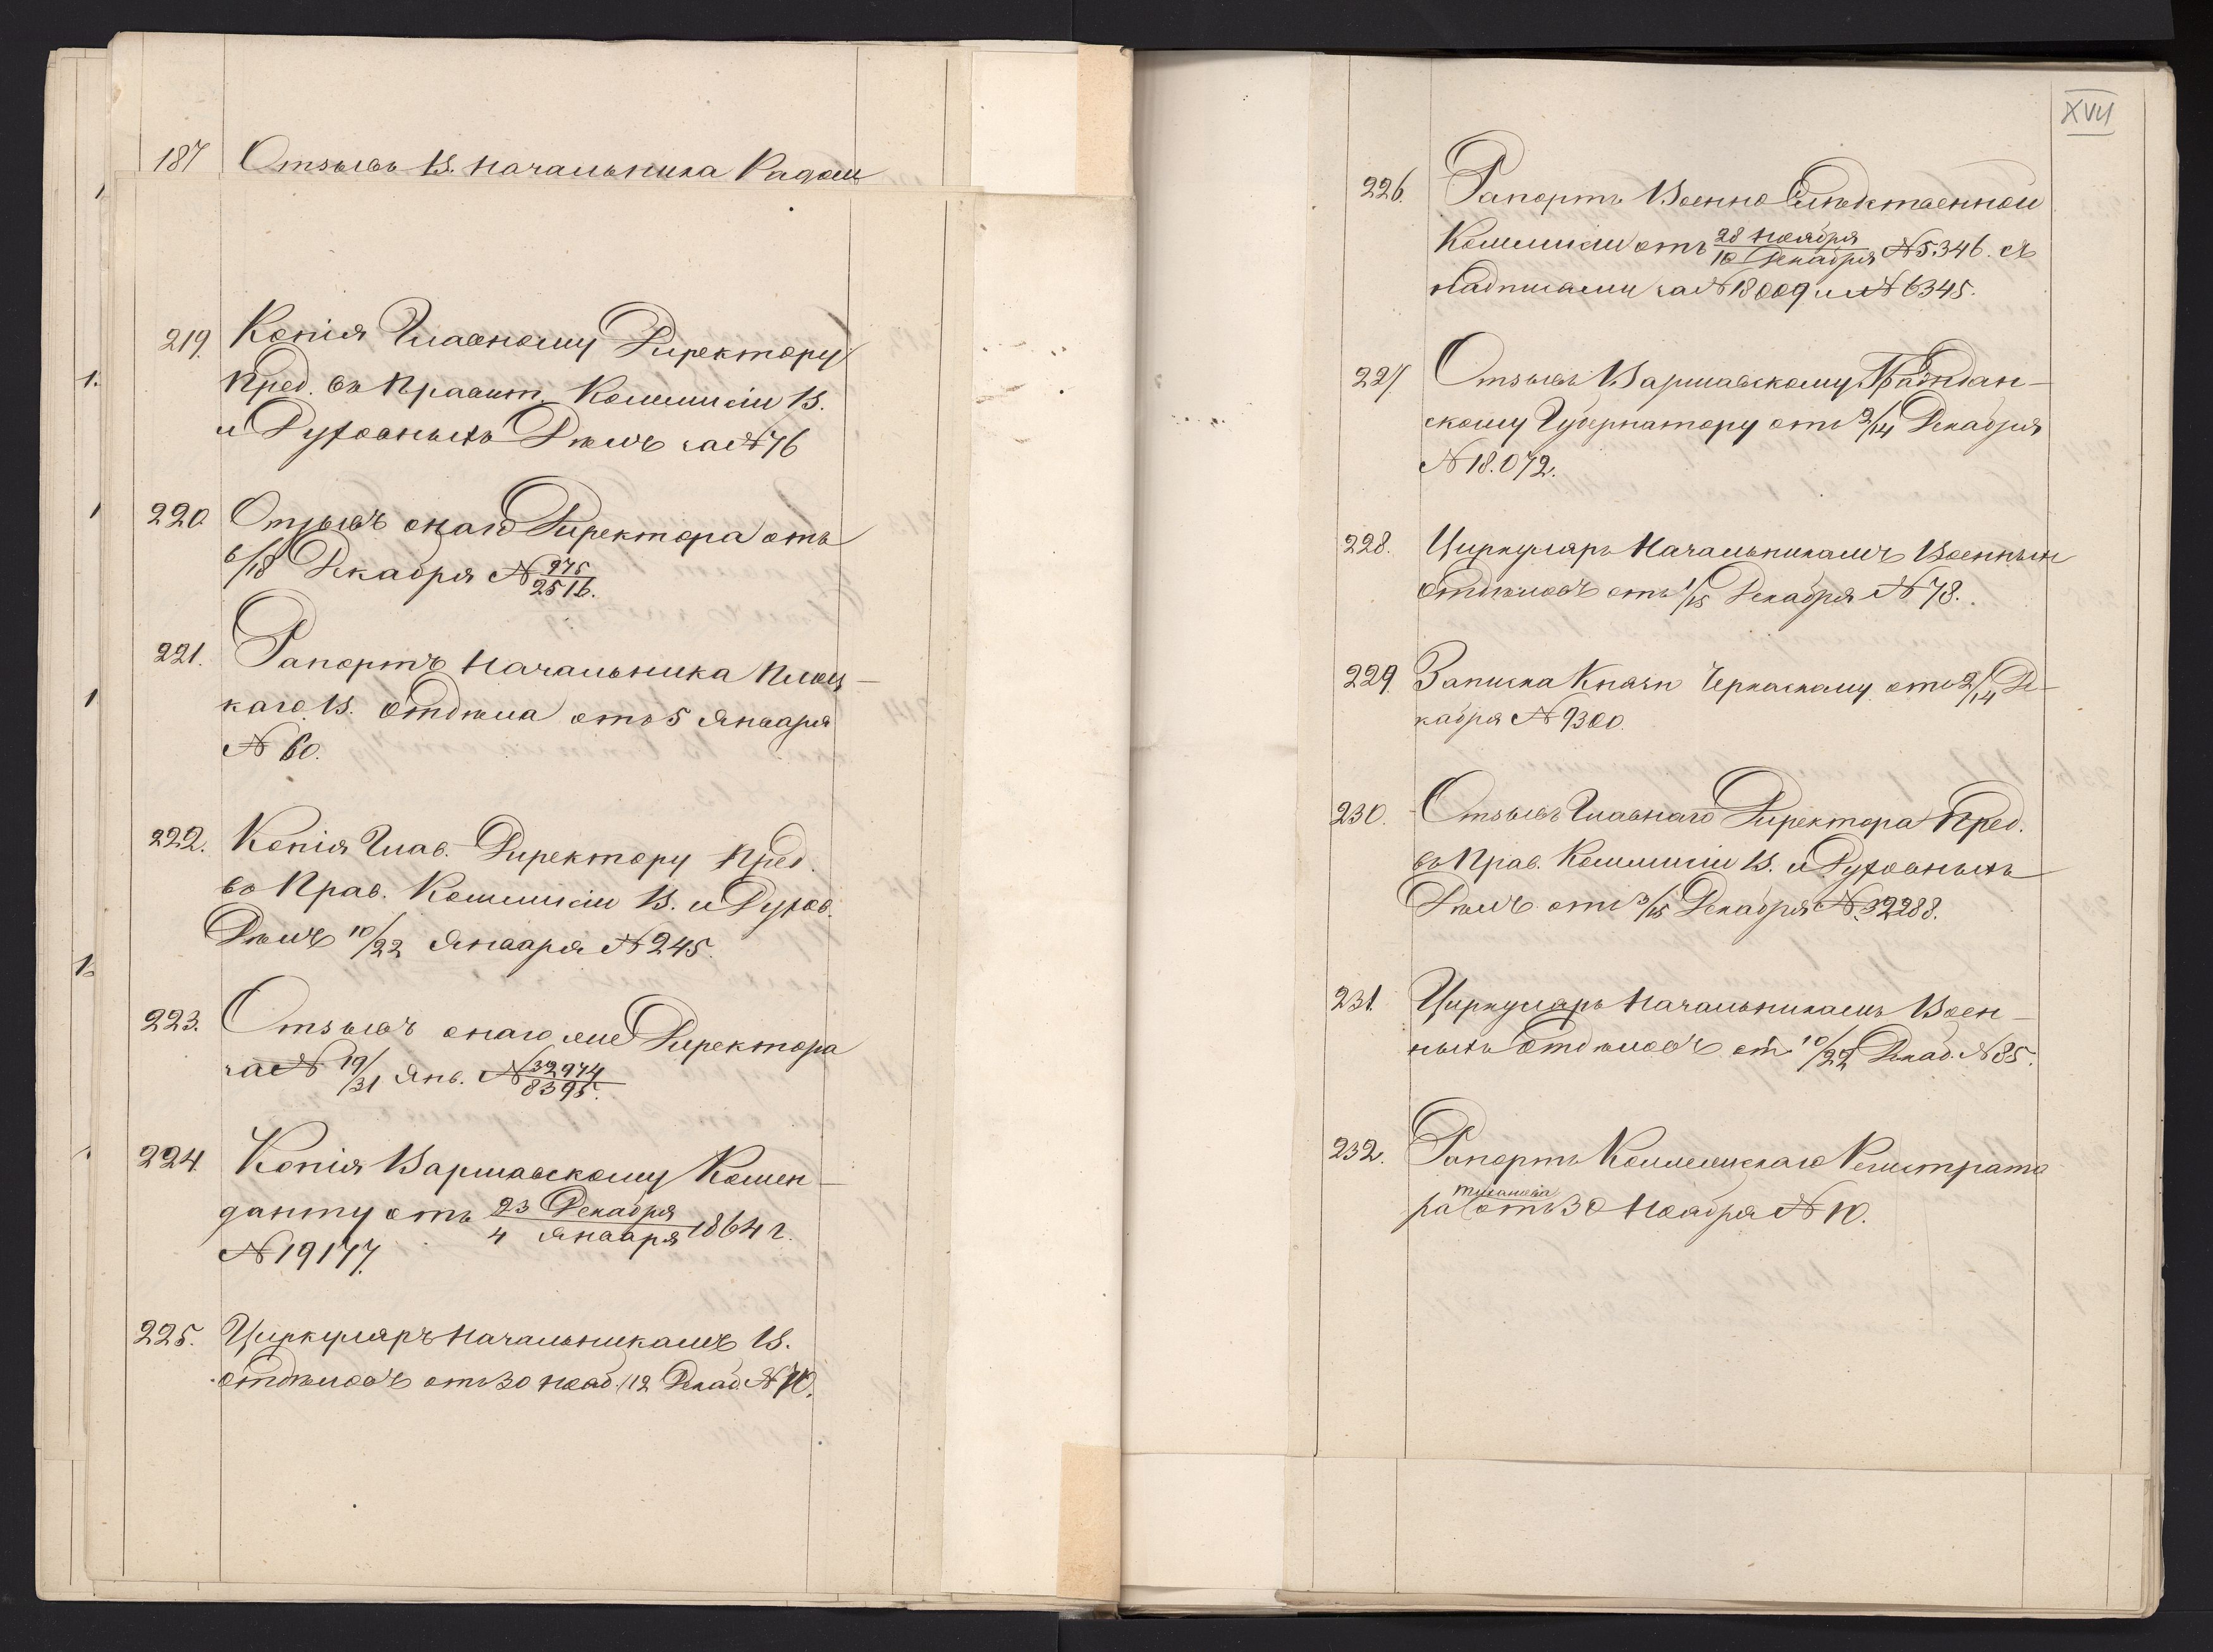 187 Отзывъ В. Начальника Радом
219. Копія Главному Директору
Пред. въ Правит. Коммисіи В.
и Духовныхъ Дѣлъ за № 76
220 Отзывъ онаго Директора отъ
6/18 Декабря № 975/2516.
221. Рапортъ Начальника Плоц-
каго В. Отдѣла отъ 5 Января
№ 60.
222. Копія Глав. Директору Пред.
въ Прав. Коммисіи В. и Духов.
Дѣлъ 10/22 Января № 245.
223. Отзывъ онаго же Директора
за № 19/31 Янв. № 32974/8395.
224 Копія Варшавскому Комен-
данту отъ 23 Декабря/4 Января 1864 г.
№ 19177.
225. Циркуляръ Начальникамъ В.
Отдѣловъ отъ 30 Нояб./12 Декаб. № 70.
XVII
226. Рапортъ Военно Слѣдственной
Коммисіи отъ 28 Ноября/10 Декабря № 5346. съ
надписами за № 18009 и № 6345.
227. Отзывъ Варшавскому Граждан-
скому Губернатору отъ 2/14 Декабря
№ 18.072.
228. Циркуляръ Начальникамъ Военныхъ
Отдѣловъ отъ 1/15 Декабря № 78.
229. Записка Князю Черкаскому отъ 2/14 Де-
кабря № 9300.
230. Отзывъ Главнаго Директора Пред.
въ Прав. Коммисіи В. и Духовныхъ
Дѣлъ отъ 3/15 Декабря № 32288.
231. Циркуляръ Начальникамъ Воен-
ныхъ Отдѣловъ от 10/22 Декаб. № 85.
232. Рапортъ Коллежскаго Регистрато
ра отъ 30 Ноября № 10.